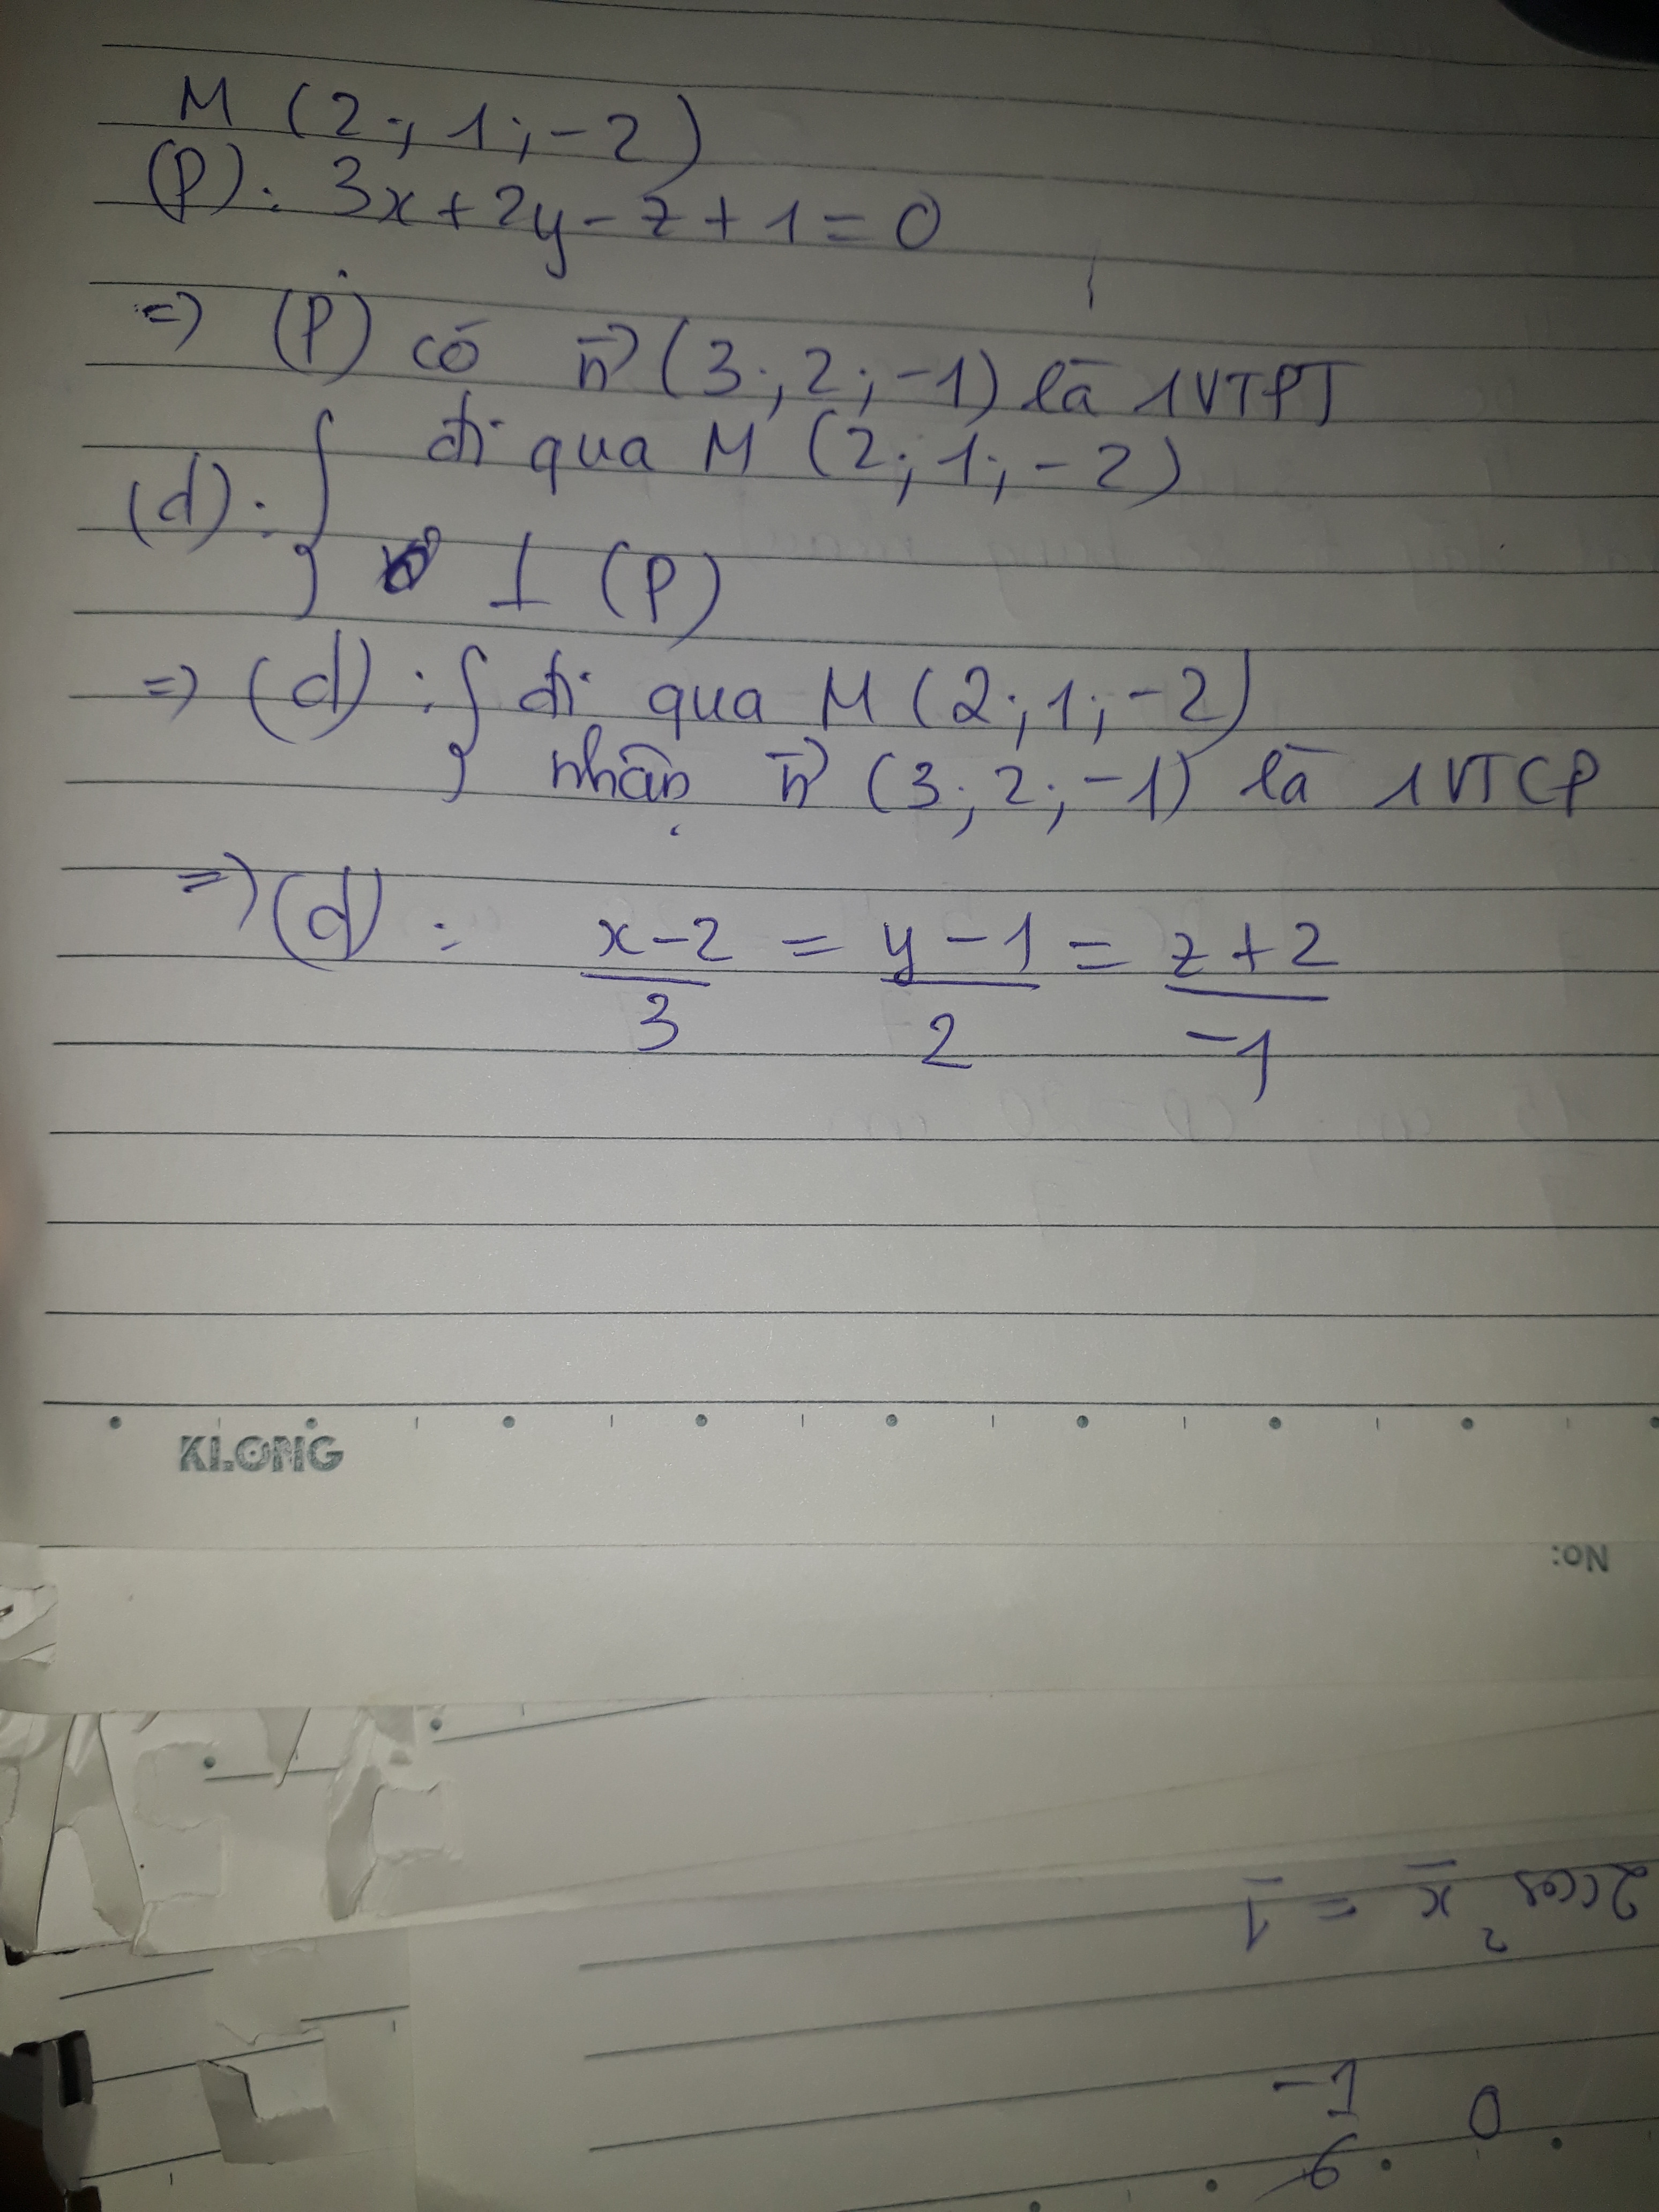 M (2; 1; -2)
(P): 3x + 2y - z + 1 = 0
=> (P) có n⃗ (3; 2; -1) là 1VTPT
(d): { đi qua M (2; 1; -2)
⊥ (P)
=> (d): { đi qua M (2; 1; -2)
nhận n⃗ (3; 2; -1) là 1VTCP
=> (d): x-2/3 = y-1/2 = z+2/-1
KLONG
No:
2cos² x = 1
-1 0